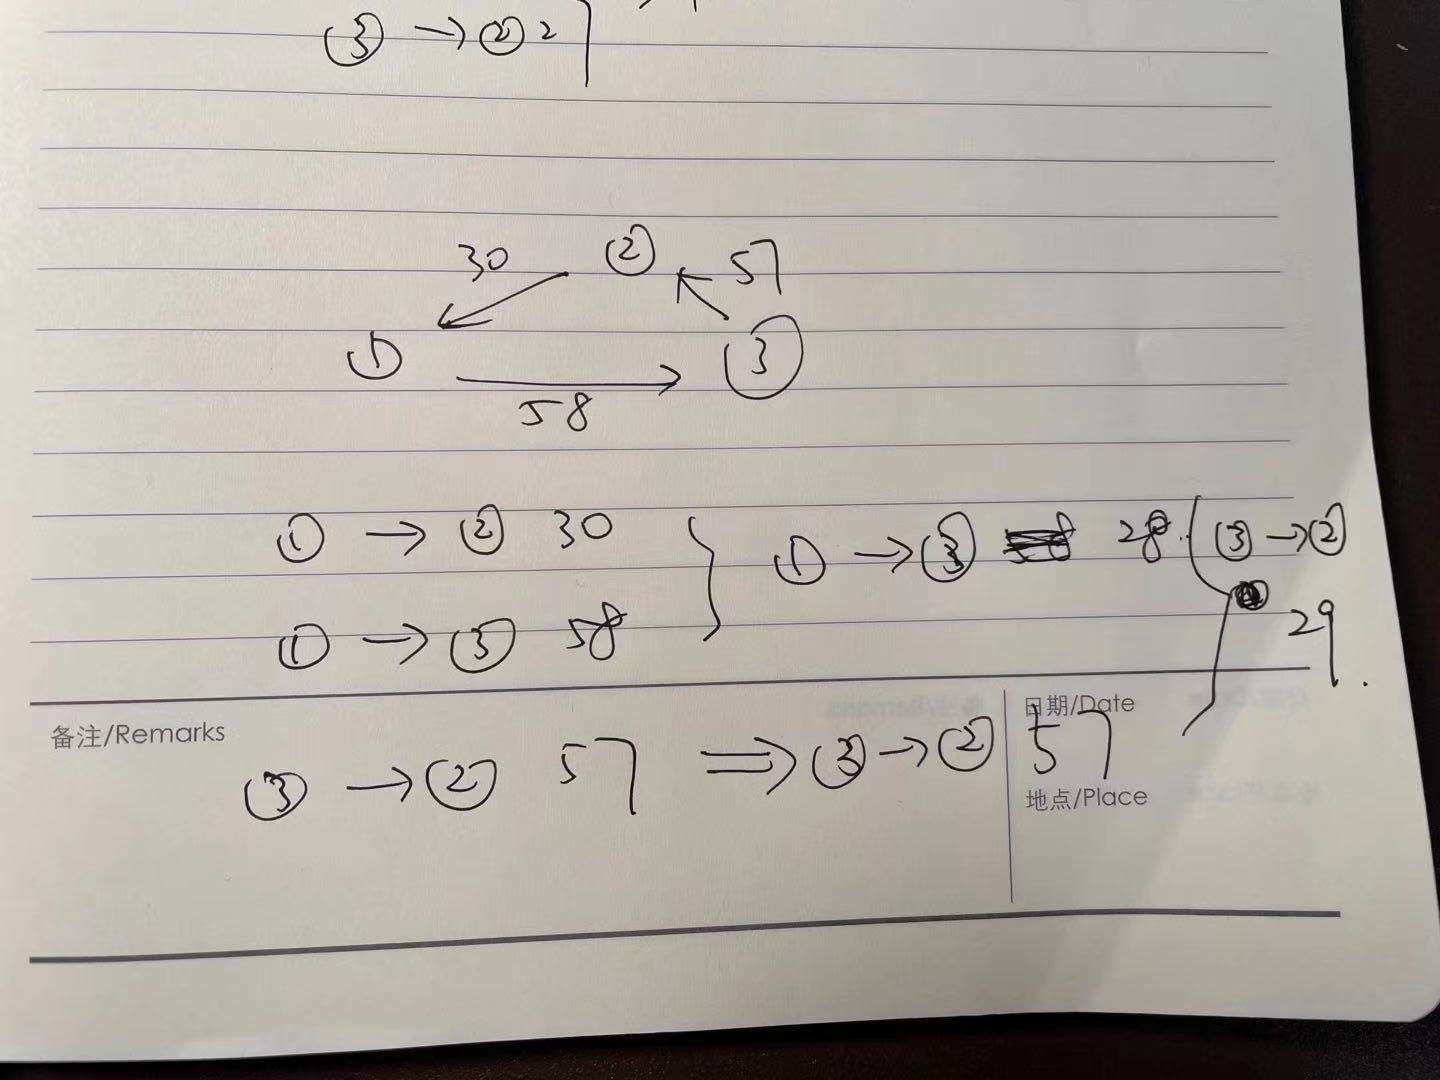 ③ → ② 2
30 ② 57
① ③
58
① → ② 30
① → ③ 28. ③ → ②
29.
① → ③ 58
备注/Remarks
日期/Date
③ → ② 57 ⇒ ③ → ② 57
地点/Place